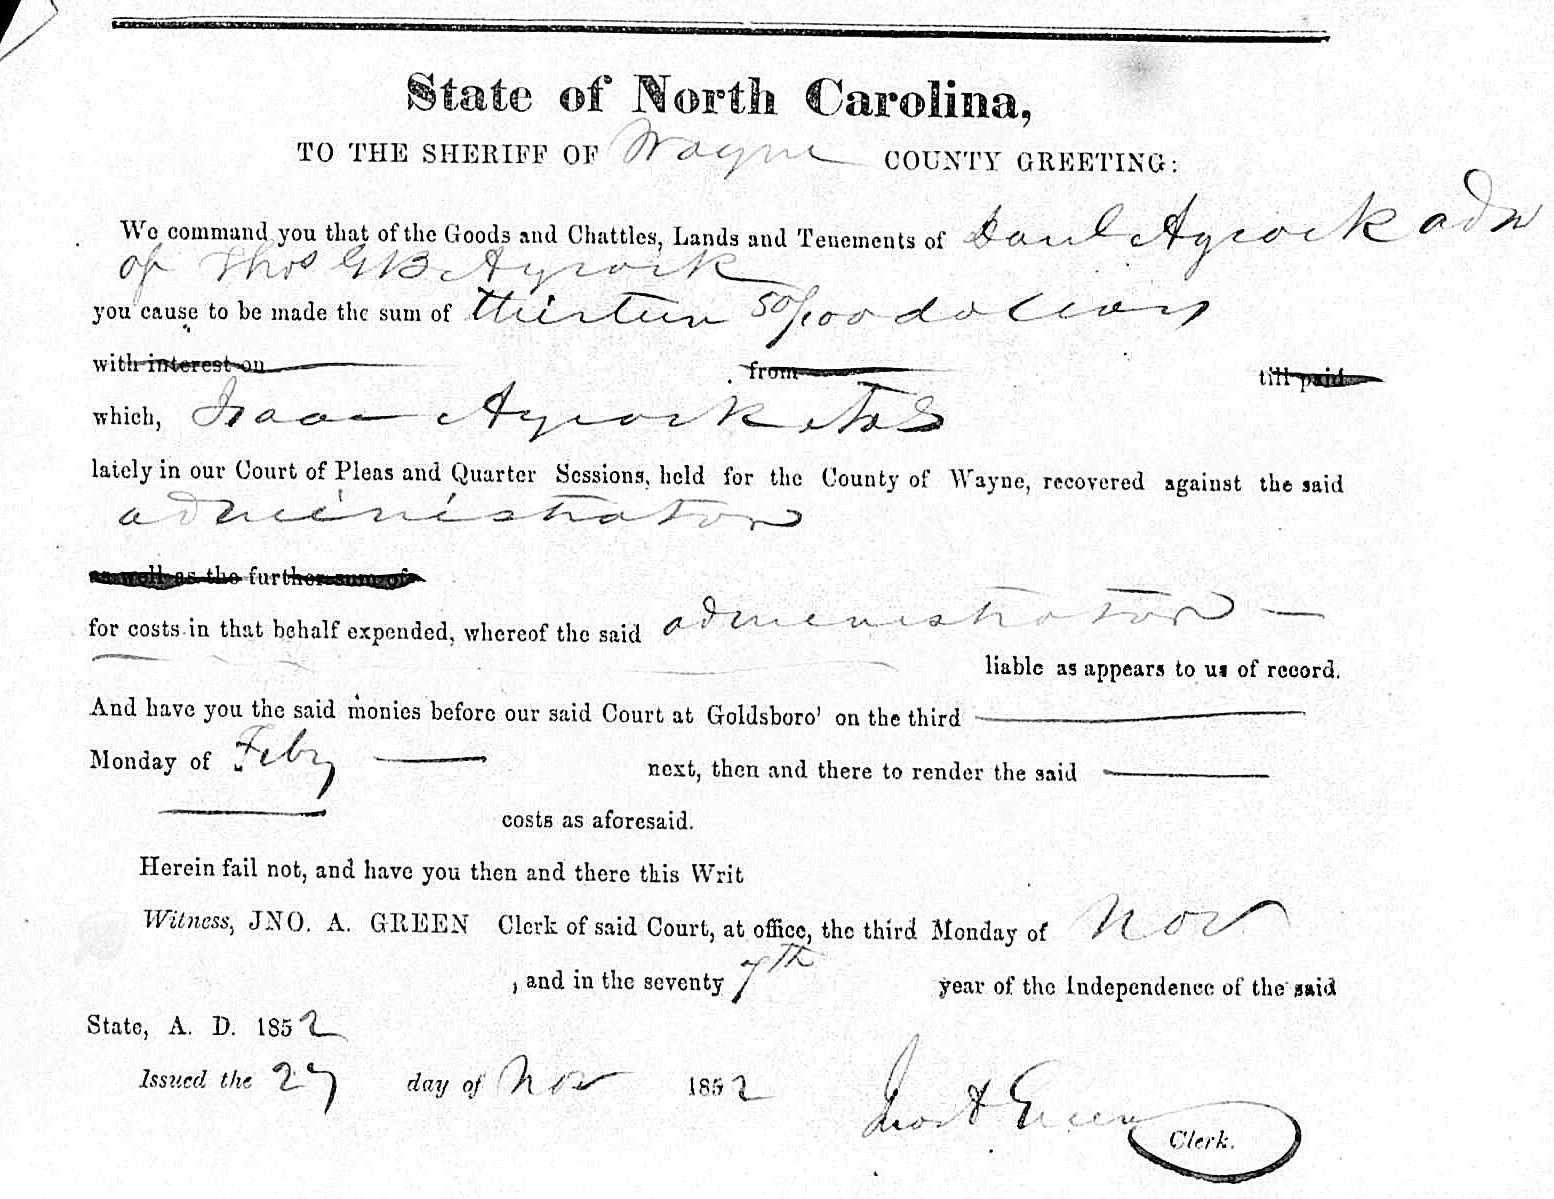 State of North Carolina,
TO THE SHERIFF OF Wayne COUNTY GREETING:
We command you that of the Goods and Chattles, Lands and Tenements of Danl Aycock adm
of Thos G B Aycock
you cause to be made the sum of thirteen 50/100 dollars
with interest on from till paid
which, Isaac Aycock
lately in our Court of Pleas and Quarter Sessions, held for the County of Wayne, recovered against the said
administrator
as well as the further sum of
for costs in that behalf expended, whereof the said administrator
liable as appears to us of record.
And have you the said monies before our said Court at Goldsboro' on the third
Monday of Feby next, then and there to render the said
costs as aforesaid.
Herein fail not, and have you then and there this Writ
Witness, JNO. A. GREEN Clerk of said Court, at office, the third Monday of Nov
, and in the seventy 7th year of the Independence of the said
State, A. D. 1852
Issued the 27 day of Nov 1852
Jno A Green
Clerk.